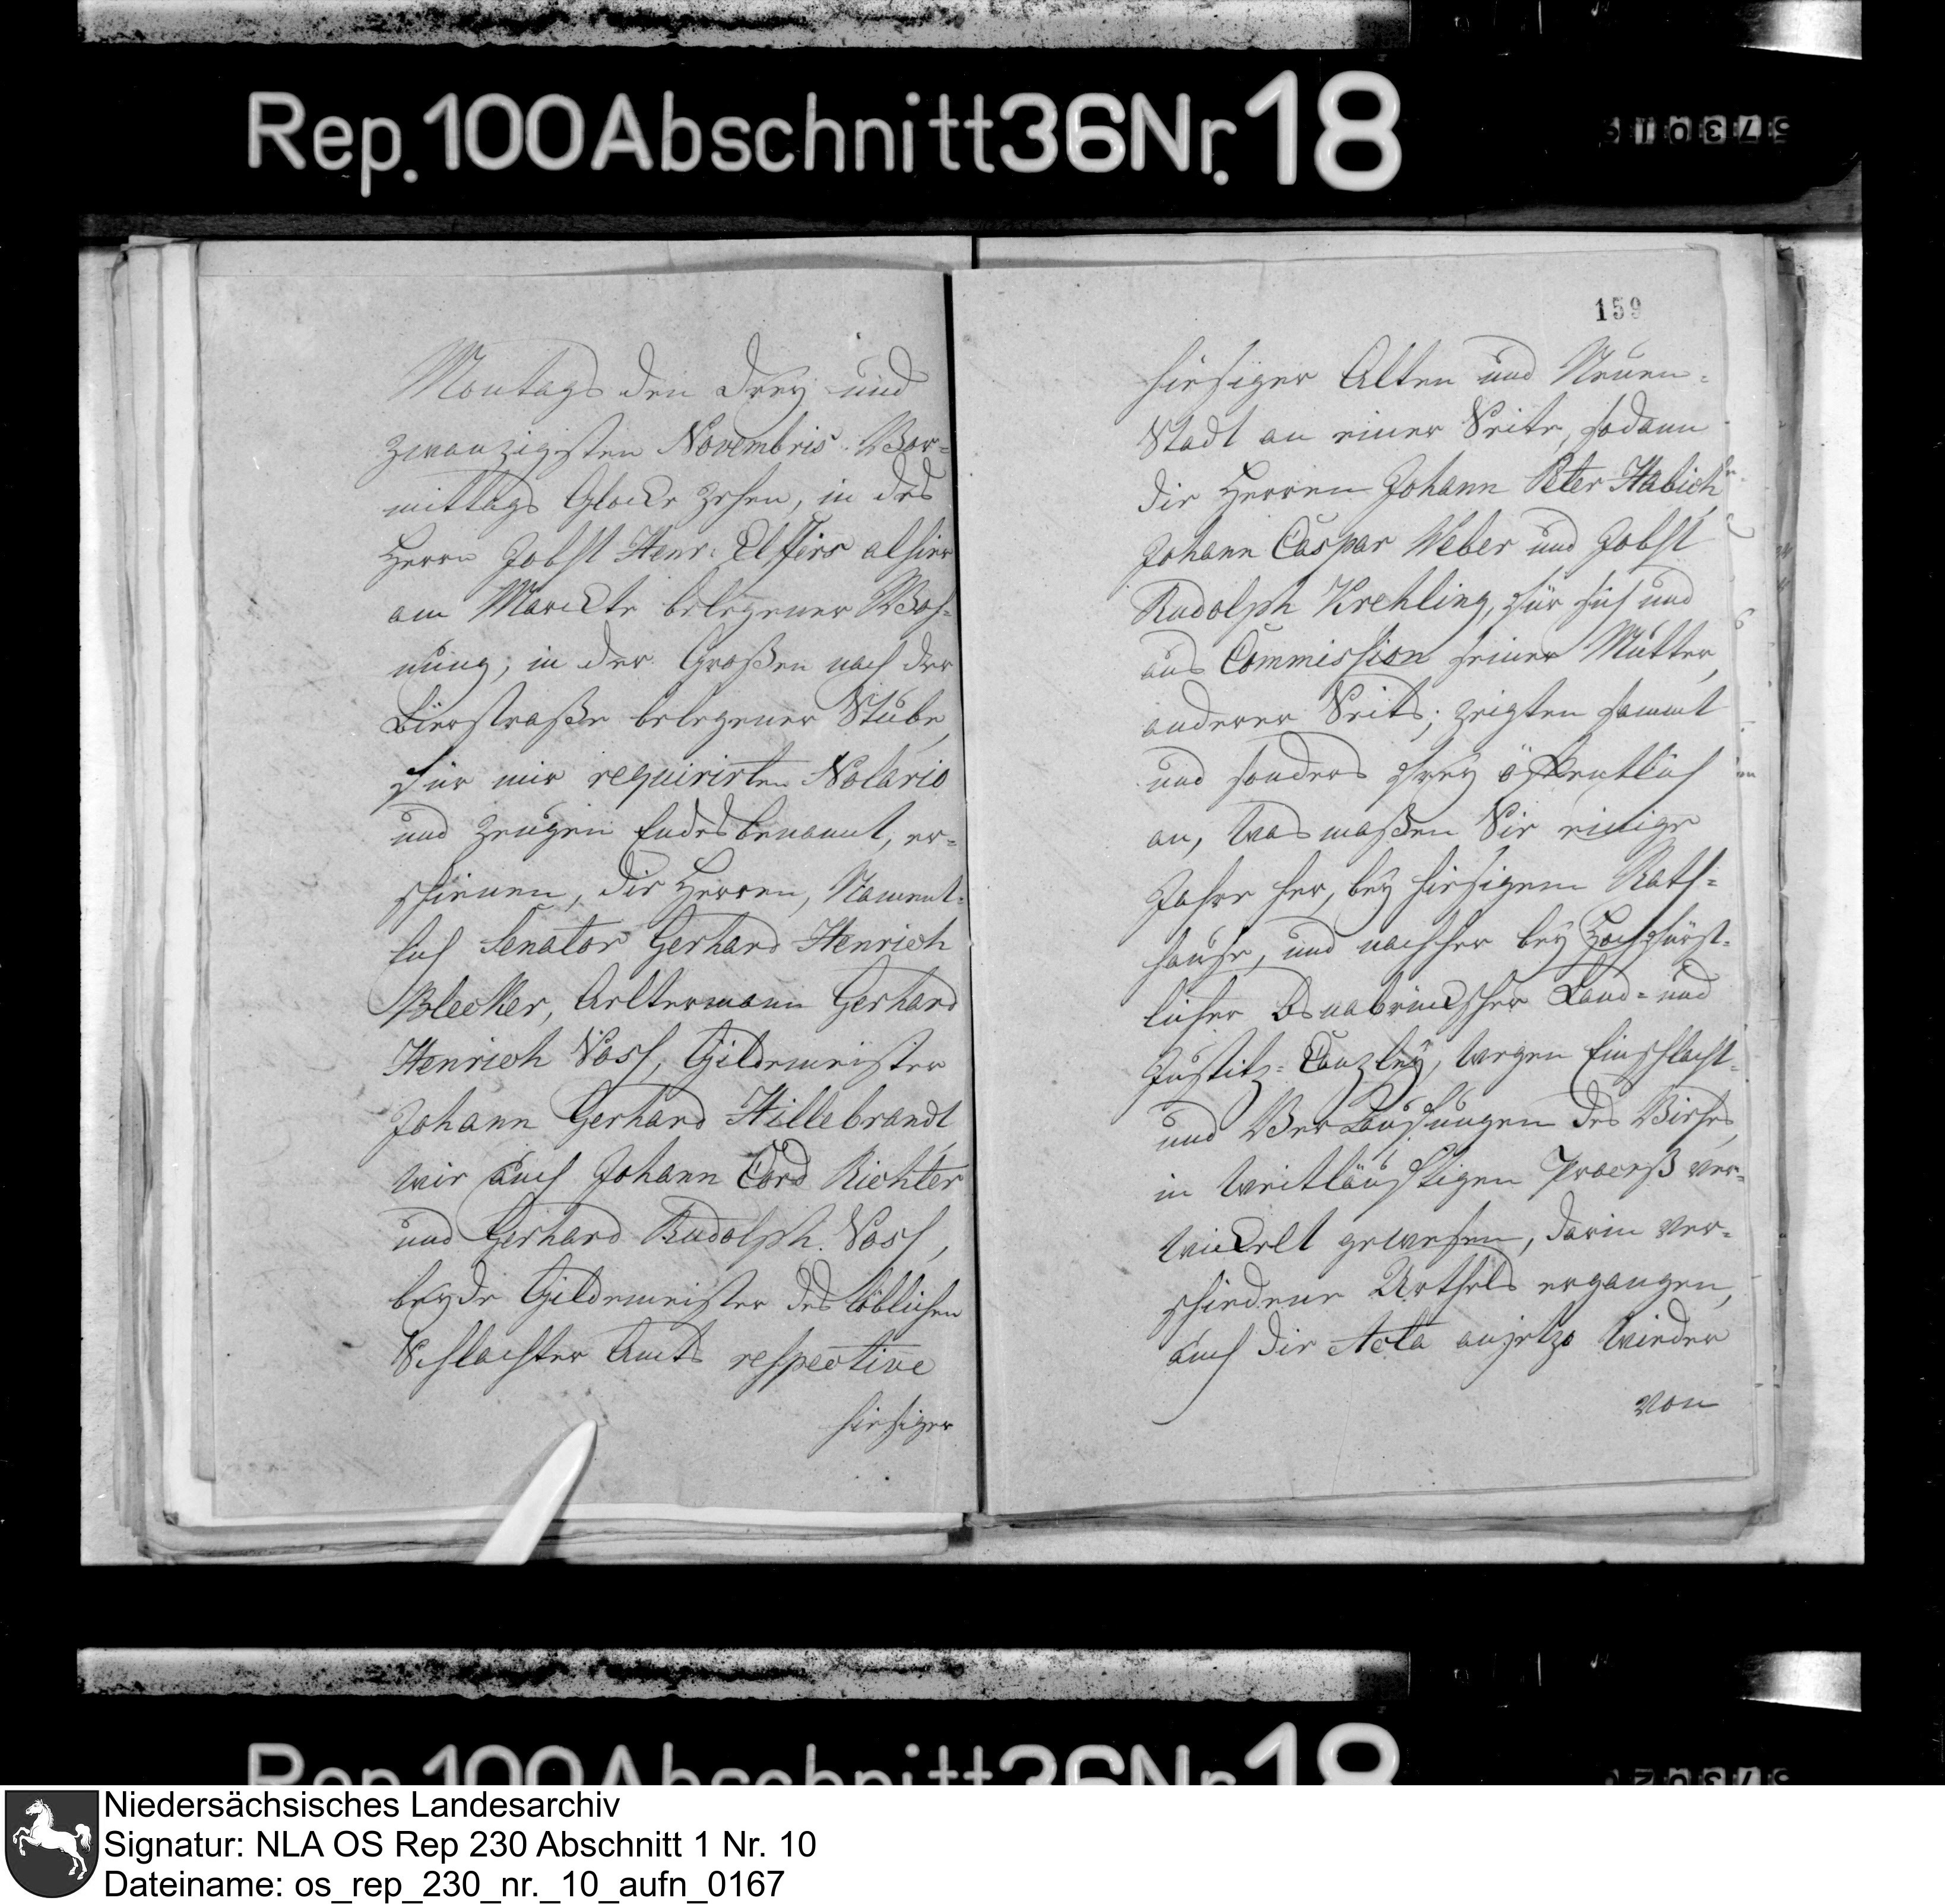 Rep. 100 Abschnitt 36 Nr. 18
Montags den drey und
zwanzigsten Novembris Vor-
mittags Glocke zehen, in des
Herrn Jobst Henr: Elffers alhier
am Marckte belegener Woh-
nung, in der Großen nach der
Bierstraße belegener Stube,
für mir requirirten Notario
und Zeugen Endesbenannt, er-
schienen, die Herren, Nament-
lich Senator Gerhard Henrich
Blecker, Aeltermann Gerhard
Henrich Voss, Gildemeister
Johann Gerhard Hillebrandt,
wie auch Johann Cord Richter
und Gerhard Rudolph Voss,
beyde Gildemeister des löblichen
Schlachter Amts respective
hiesiger
159
hiesiger Alten und Neuen-
Stadt an einer Seite, sodann
die Herren Johann Peter Habich
Johann Caspar Weber und Jobst
Rudolph Krehling, für sich und
aus Commission seiner Mutter,
anderer Seits; zeigten sammt
und sonders frey öffentlich
an, was maßen Sie einige
Jahre her, bey hiesigem Rath-
hause, und nachher bey Hochfürst-
licher Osnabrückscher Land- und
Justitz-Canzley, wegen Einschlacht-
und Verkaufungen des Viehes,
in weitläuftigen Proceß ver-
wickelt gewesen, darin ver-
schiedene Urthels ergangen,
auch die Acta anjetzo wieder
von
Rep. 100 Abschnitt 36 Nr. 18
Niedersächsisches Landesarchiv
Signatur: NLA OS Rep 230 Abschnitt 1 Nr. 10
Dateiname: os_rep_230_nr._10_aufn_0167